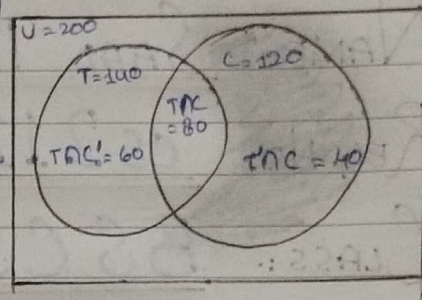 U = 200
T = 140
C = 120
T∩C
= 80
T∩C' = 60
T'∩C = 40